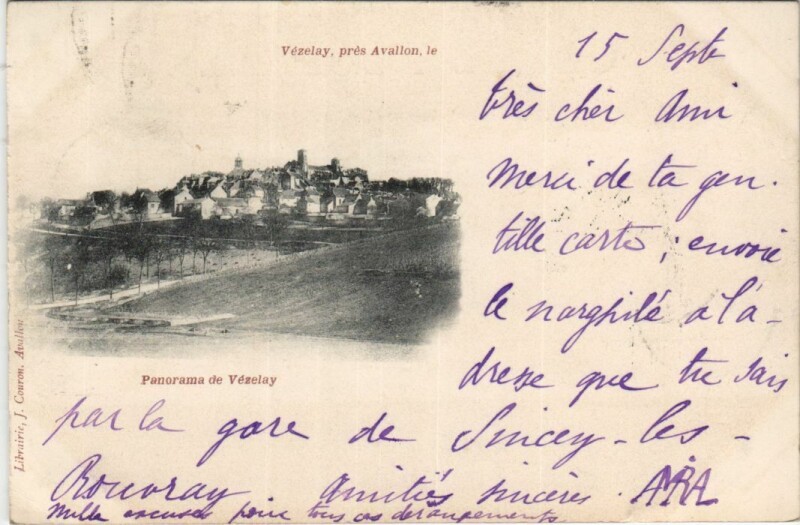 Vézelay, près Avallon, le
15 Sept
très cher Ami
Merci de ta gen-
tille carte ; envoie
le narghilé a l'a-
dresse que tu sais
par la gare de Sincey-les-
Rouvray amitiés sincères
Mille excuses pour tous ces dérangements
Panorama de Vézelay
Librairie, J. Couron, Avallon